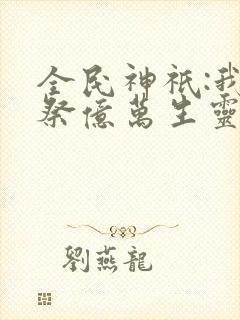 全民神祇:我
祭億萬生靈
劉燕龍